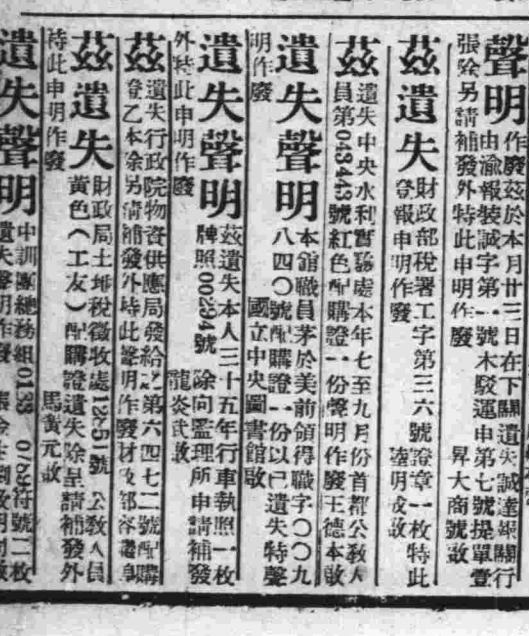 聲明
作廢茲於本月廿三日在下關遺失誠達報關行
由渝報裝誠字第一號木駁運申第七號提單壹
張除另請補發外特此申明作廢 昇大商號啟
茲遺失
財政部稅署工字第三六號證章一枚特此
登報申明作廢 陸明成啟
茲
遺失中央水利實驗處本年七至九月份首都公教人
員第043443號紅色配購證一份聲明作廢王德本啟
遺失聲明
本館職員茅於美前領得職字〇〇九
八四〇號配購證一份以已遺失特聲
明作廢 國立中央圖書館啟
遺失聲明
茲遺失本人三十五年行車執照一枚
牌照00294號 除向監理所申請補發
外特此申明作廢 龍炎武啟
茲
遺失行政院物資供應局發給之第六四七二號配購
證乙本除另請補發外特此聲明作廢財政部容
茲遺失
財政局土地稅徵收處125號 公教人員
黃色(工友)配購證遺失除呈請補發外
特此申明作廢 馬萬元啟
遺失聲明
中訓團總務組0133 0769符號二枚
遺失聲明作廢